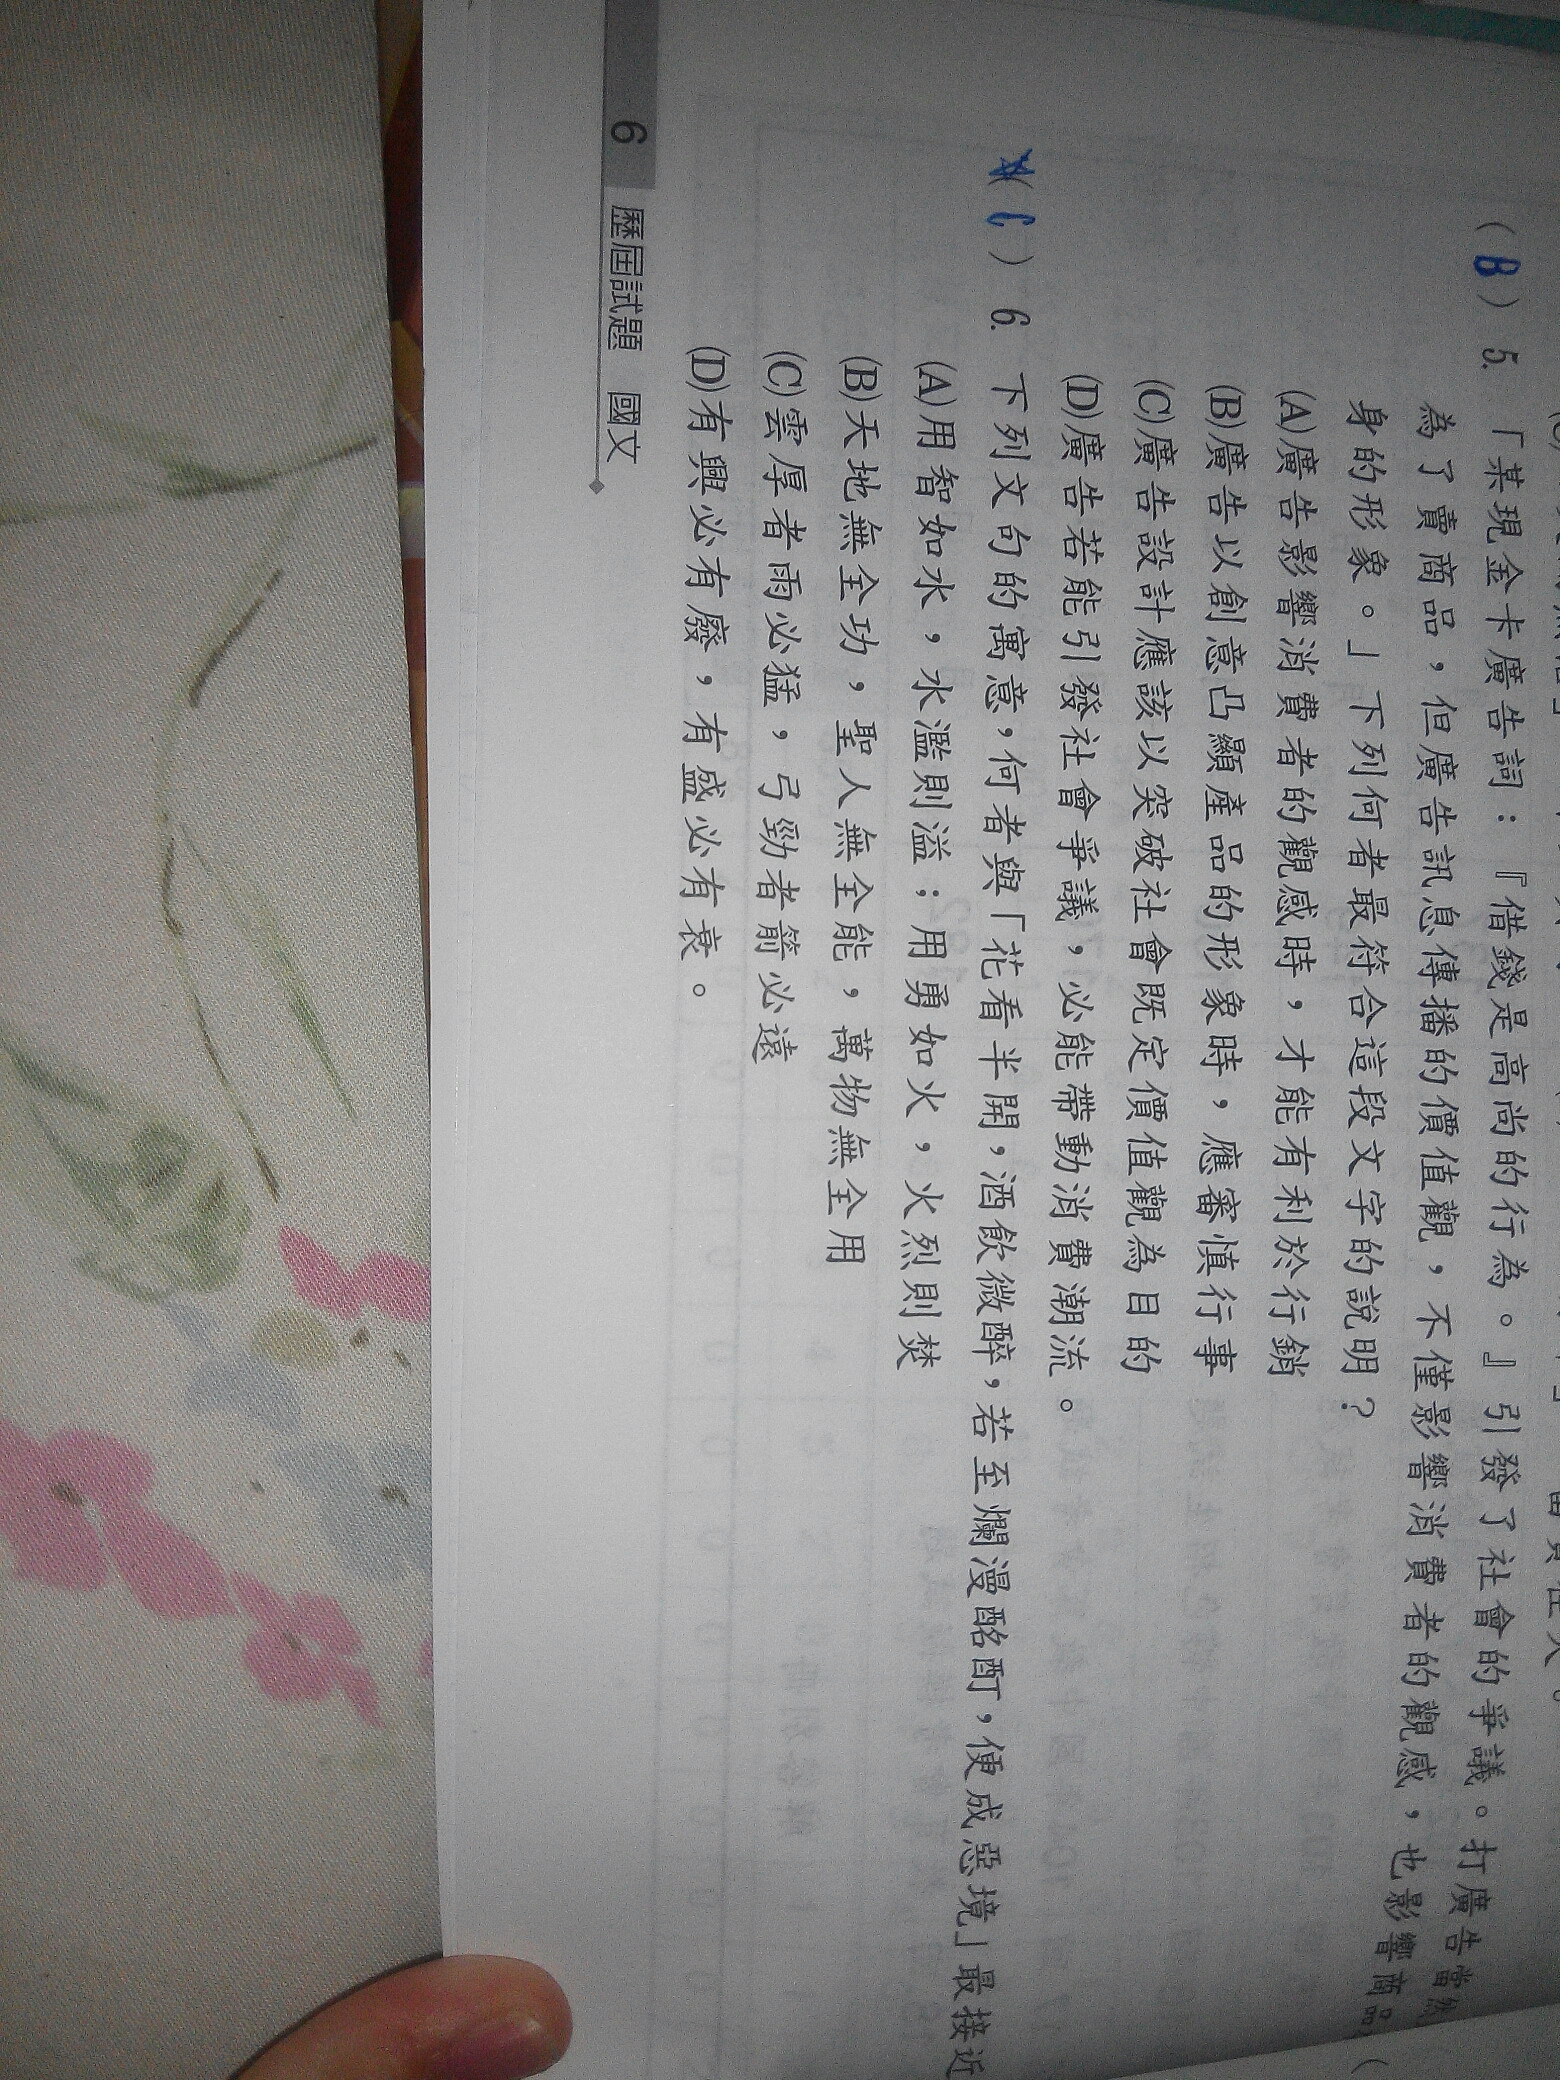 (B) 5. 「某現金卡廣告詞：『借錢是高尚的行為。』引發了社會的爭議。打廣告當然
為了賣商品，但廣告訊息傳播的價值觀，不僅影響消費者的觀感，也影響商品
身的形象。」下列何者最符合這段文字的說明？
(A)廣告影響消費者的觀感時，才能有利於行銷
(B)廣告以創意凸顯產品的形象時，應審慎行事
(C)廣告設計應該以突破社會既定價值觀為目的
(D)廣告若能引發社會爭議，必能帶動消費潮流。
(C) 6. 下列文句的寓意，何者與「花看半開，酒飲微醉，若至爛漫酩酊，便成惡境」最接近
(A)用智如水，水濫則溢；用勇如火，火烈則焚
(B)天地無全功，聖人無全能，萬物無全用
(C)雲厚者雨必猛，弓勁者箭必遠
(D)有興必有廢，有盛必有衰。
6 歷屆試題 國文